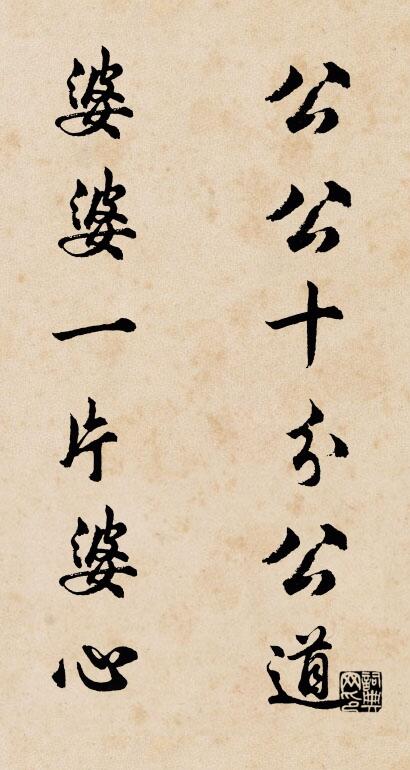 公公十分公道
婆婆一片婆心
詞典網印